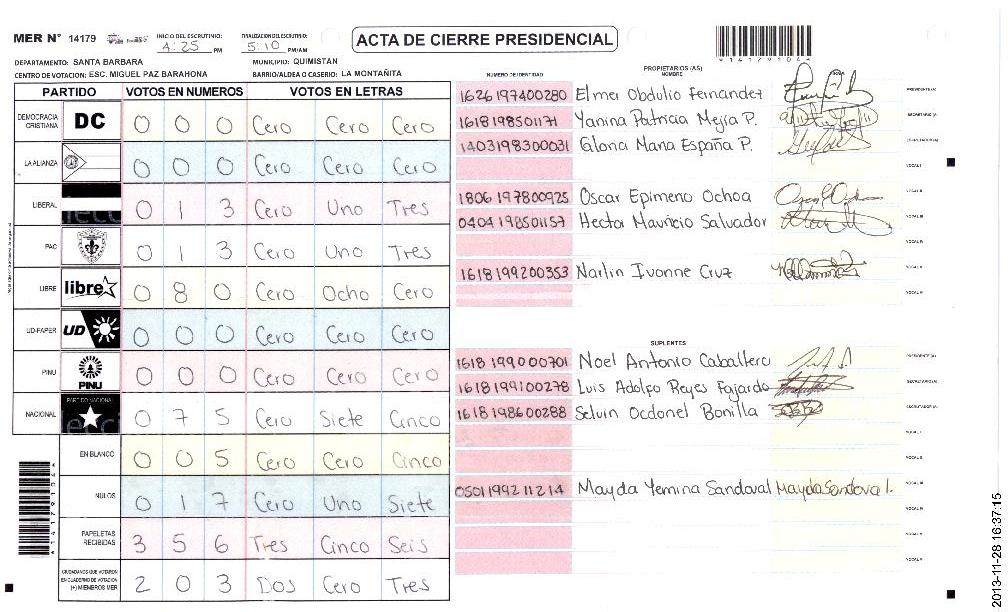 MER N° 14179
INICIO DEL ESCRUTINIO:
4:25 PM
FINALIZACION DEL ESCRUTINIO:
5:10 PM/AM
ACTA DE CIERRE PRESIDENCIAL
*14179104*
DEPARTAMENTO: SANTA BARBARA
MUNICIPIO: QUIMISTAN
CENTRO DE VOTACION: ESC. MIGUEL PAZ BARAHONA
BARRIO/ALDEA O CASERIO: LA MONTAÑITA
PARTIDO VOTOS EN NUMEROS VOTOS EN LETRAS
DEMOCRACIA CRISTIANA DC 0 0 0 Cero Cero Cero
LA ALIANZA 0 0 0 Cero Cero Cero
LIBERAL 0 1 3 Cero Uno Tres
PAC 0 1 3 Cero Uno Tres
LIBRE libre 0 8 0 Cero Ocho Cero
UD-FAPER UD 0 0 0 Cero Cero Cero
PINU PINU 0 0 0 Cero Cero Cero
NACIONAL PARTIDO NACIONAL 0 7 5 Cero Siete Cinco
EN BLANCO 0 0 5 Cero Cero Cinco
NULOS 0 1 7 Cero Uno Siete
PAPELETAS RECIBIDAS 3 5 6 Tres Cinco Seis
CIUDADANOS QUE VOTARON EN CUADERNO DE VOTACION (+) MIEMBROS MER 2 0 3 Dos Cero Tres
PROPIETARIOS (AS)
NUMERO DE IDENTIDAD NOMBRE
1626197400280 Elmer Obdulio Fernandez PRESIDENTE (A)
1618198501171 Yanina Patricia Mejía P. SECRETARIO (A)
1403198300031 Gloria Maria España P. ESCRUTADOR (A)
VOCAL I
1806197800925 Oscar Epimeno Ochoa VOCAL II
0404198501157 Hector Mauricio Salvador VOCAL III
VOCAL IV
1618199200353 Narlin Ivonne Cruz VOCAL V
VOCAL VI
SUPLENTES
1618199000701 Noel Antonio Caballero PRESIDENTE (A)
1618199100278 Luis Adolfo Reyes Fajardo SECRETARIO (A)
1618198600288 Selvin Ocdonel Bonilla ESCRUTADOR (A)
VOCAL I
VOCAL II
0501199211214 Mayda Yemina Sandoval Mayda Sandoval. VOCAL III
VOCAL IV
VOCAL V
VOCAL VI
*14179104*
2013-11-28 16:37:15